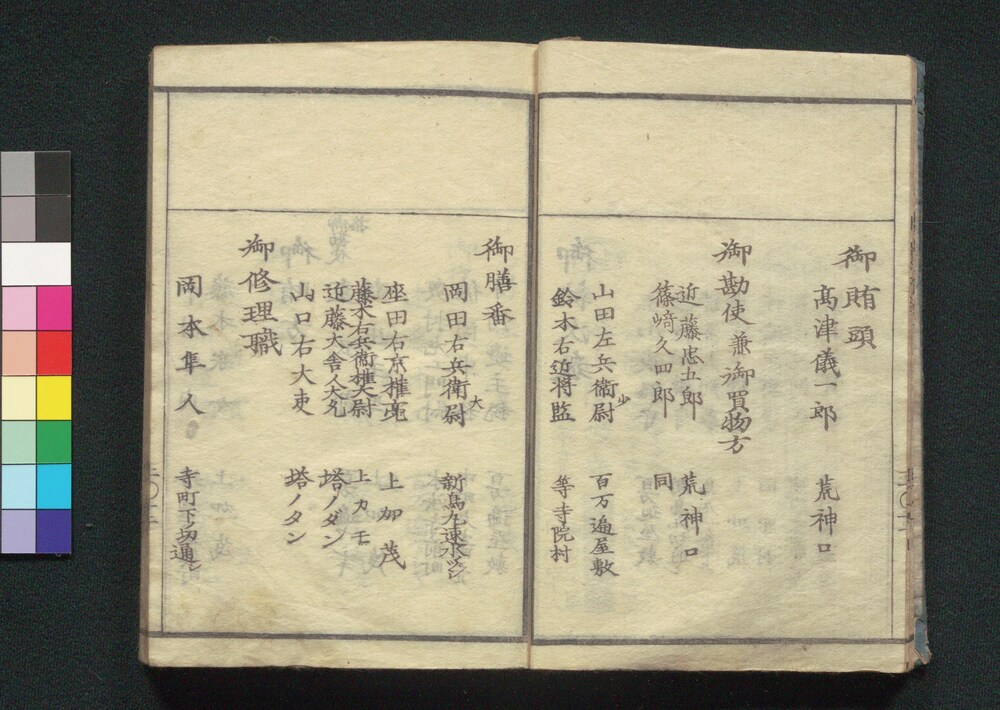 御賄頭
高津儀一郎 荒神口
御勘使兼御買物方
近藤忠五郎 荒神口
篠﨑久四郎 同
山田左兵衛少尉 百万遍屋敷
鈴木右近将監 等寺院村
御膳番
岡田右兵衛大尉 新烏丸速水ツシ
座田右京権亮 上加茂
藤木右兵衛権大尉 上カモ
近藤大舎人大允 塔ノダン
山口右大史 塔ノタン
御修理職
岡本隼人 寺町下切通シ